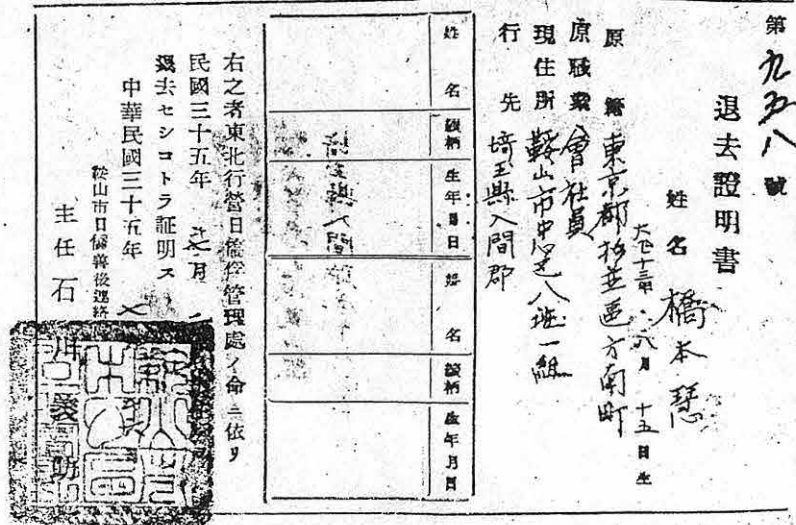 第九五八號
退去證明書
姓名 橋本
大正十三年 八月 十五日生
原籍 東京都杉並區方南町
原職業 會社員
現住所 鞍山市中区八班一組
行先 埼玉縣入間郡
姓名 續柄 生年月日 姓名 續柄 生年月日
右之者東北行營日僑俘管理處ノ命ニ依リ
民國三十五年 月
退去セシコトヲ証明ス
中華民國三十五年
鞍山市日僑善後連絡
主任 石川義助